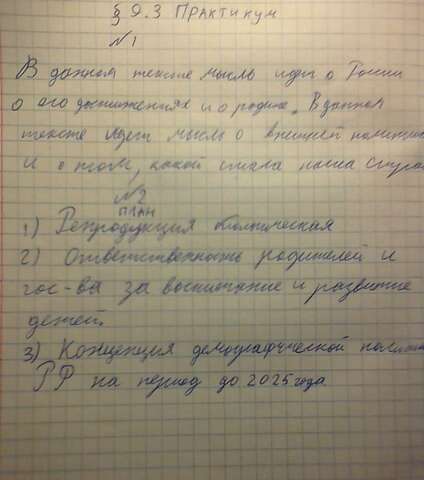 § 9.3 Практикум
№1
В данном тексте мысль идёт о России
о его достижениях и о родине. В данном
тексте идёт мысль о внешней политике
И о том, какой стала наша стра
№2
ПЛАН
1) Репродукция
2) Ответственность родителей и
гос-ва за воспитание и развитие
детей.
3) Концепция демографической поли
РФ на период до 2025 года